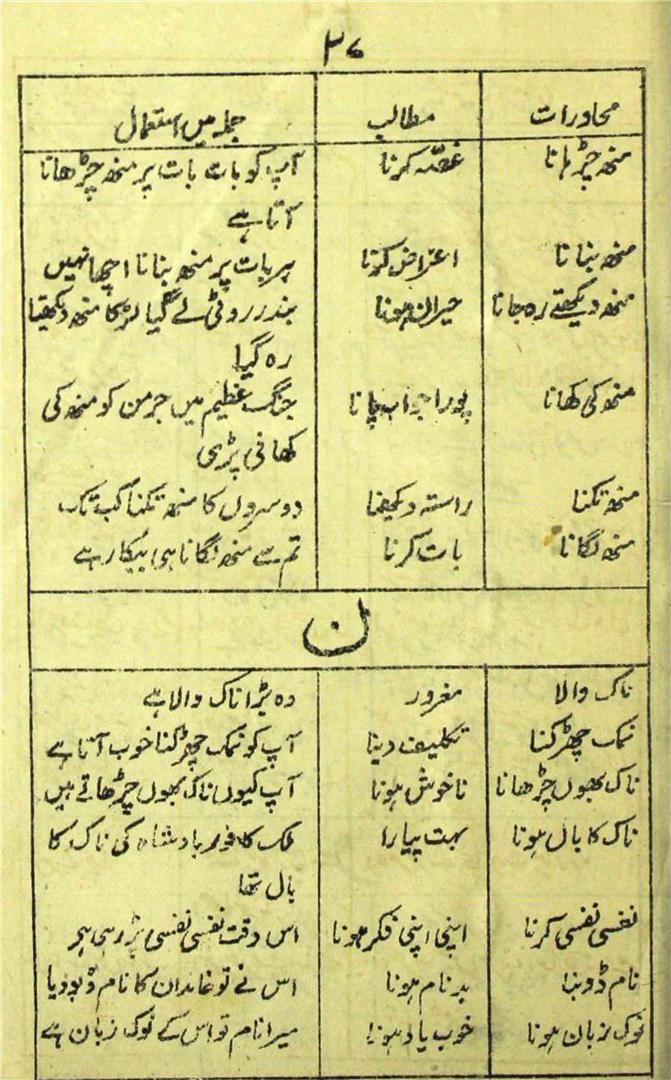 ۳۷
محاورات مطالب جملہ میں استعمال
منھ چڑہانا غصّہ کرنا آپ کو بات بات پر منھ چڑھانا
آتا ہے
منھ بنانا اعتراض کرنا ہر بات پر منھ بنانا اچھا نہیں
منھ دیکھتے رہ جانا حیران ہونا بندر روٹی لے گیا لڑکا منھ دیکھتا
رہ گیا
منھ کی کھانا پورا جواب پانا جنگ عظیم میں جرمن کو منھ کی
کھانی پڑی
منھ تکنا راستہ دیکھنا دوسروں کا منھ تکنا کب تک
منھ لگانا بات کرنا تم سے منھ لگانا ہی بیکار ہے
ن
ناک والا مغرور وہ بڑا ناک والا ہے
نمک چھڑکنا تکلیف دینا آپ کو نمک چھڑکنا خوب آتا ہے
ناک بھوں چڑھانا ناخوش ہونا آپ کیوں ناک بھوں چڑھاتے ہیں
ناک کا بال ہونا بہت پیارا ملک کافور بادشاہ کی ناک کا
بال تھا
نفسی نفسی کرنا اپنی اپنی فکر ہونا اس وقت نفسی نفسی پڑ رہی ہے
نام ڈوبنا بدنام ہونا اس نے تو خاندان کا نام ڈبو دیا
نوک زبان ہونا خوب یاد ہونا میرا نام تو اس کے نوک زبان ہے